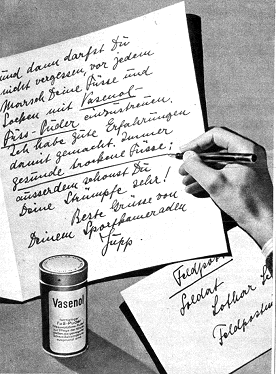 und dann darfst Du
nicht vergessen, vor jedem
Marsch Deine Füsse und
Socken mit Vasenol-
Füss-Puder einzustreuen.
Ich habe gute Erfahrungen
damit gemacht. Immer
gesunde trockene Füsse;
ausserdem schonst Du
Deine Strümpfe sehr!
Beste Grüsse von
Deinem Sportkameraden
Jupp.
Feldpost
Soldat
Lothar
Feldposten
Vasenol
Fuß-Puder